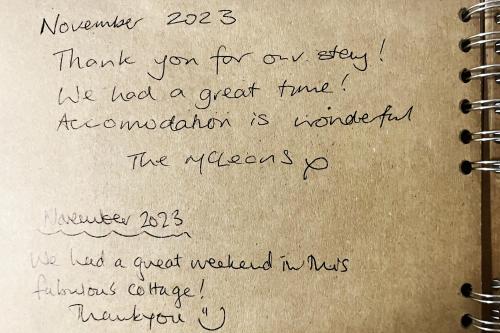 November 2023
Thank you for our stay!
We had a great time!
Accomodation is wonderful
The McLeons x
November 2023
We had a great weekend in this
fabulous cottage!
Thankyou